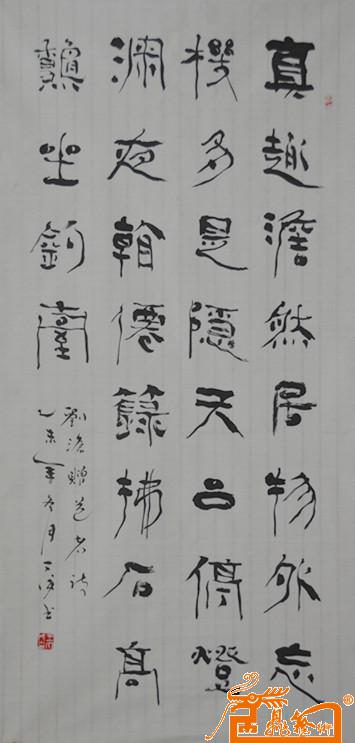 真趣澹然居物外忘
機多是隱天台停燈
深夜看僊籙拂石高
秋坐釣臺
劉滄贈道者詩
乙未年冬月